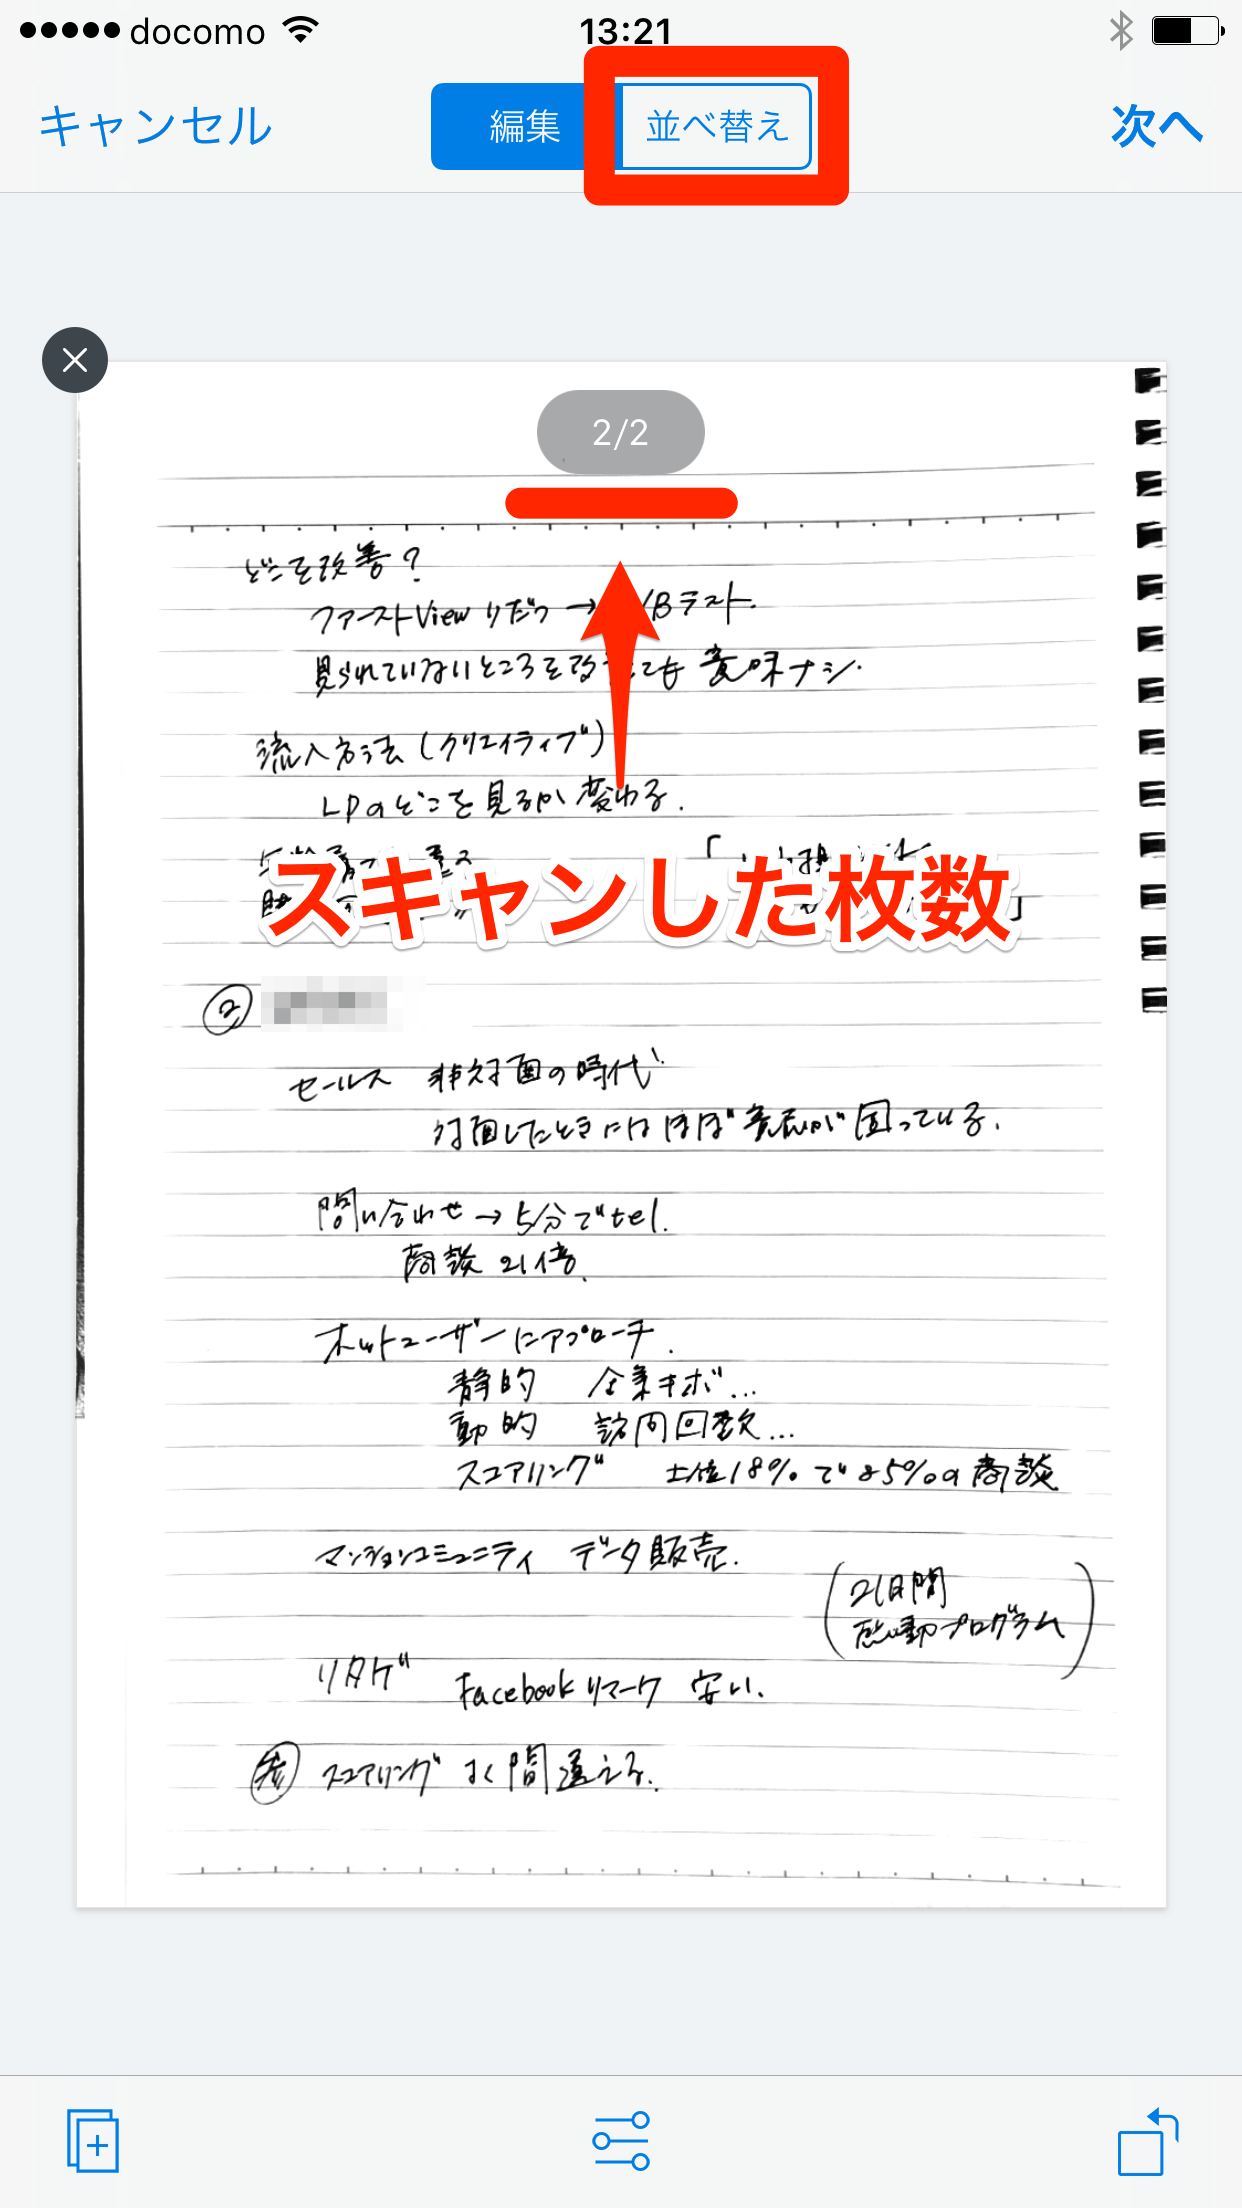 docomo 13:21
キャンセル 編集 並べ替え 次へ
2/2
どこを改善?
ファーストView りだつ → /Bテスト.
見られていないところを改 ても 意味ナシ.
流入方法 (クリエイティブ)
LPのどこを見るか変わる.
スキャンした枚数
②
セールス 非対面の時代
対面したときにはほぼ意志が固っている.
問い合わせ → 5分でtel.
商談 21倍.
ホットユーザーにアプローチ.
静的 企業キボ...
動的 訪問回数...
スコアリング 上位18%で85%の商談
マンションコミュニティ データ販売.
(21日間
感動プログラム)
リタゲ Facebookリマーク 安い.
スコアリング よく間違える.